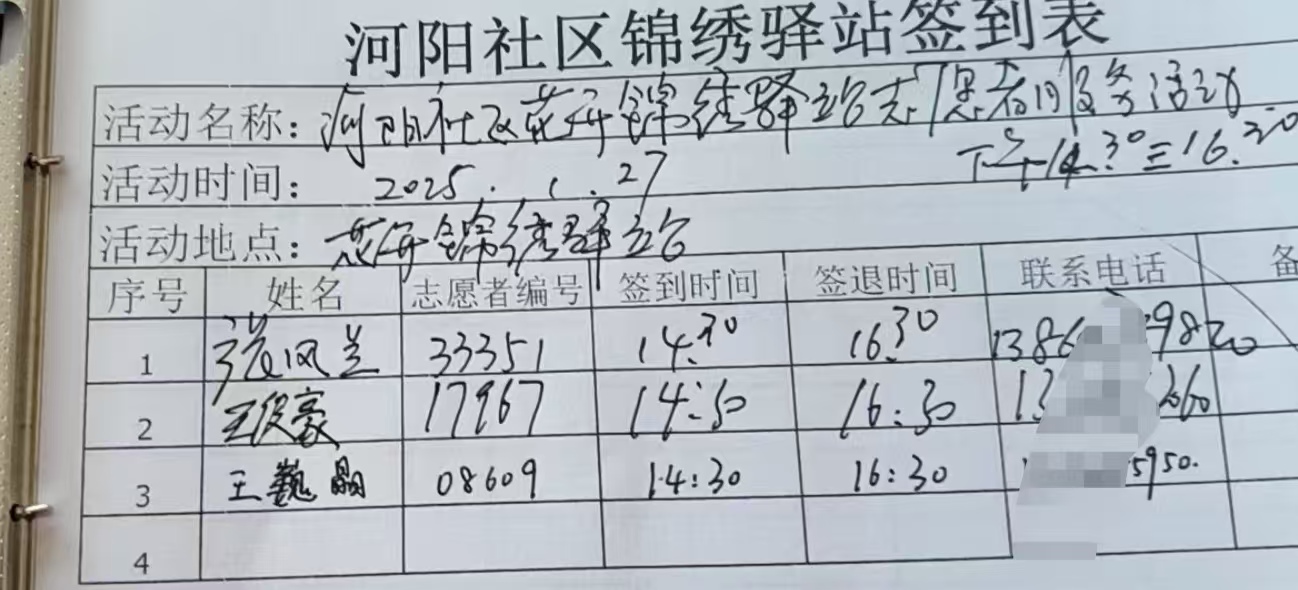 河阳社区锦绣驿站签到表
活动名称：河阳社区花海锦绣驿站志愿者服务活动
活动时间：2025.1.27 下午14:30至16:30
活动地点：花海锦绣驿站
序号 姓名 志愿者编号 签到时间 签退时间 联系电话 备
1 张凤兰 33351 14:30 16:30 1386 9820
2 王俊豪 17967 14:30 16:30 13 260
3 王巍晶 08609 14:30 16:30 5950.
4